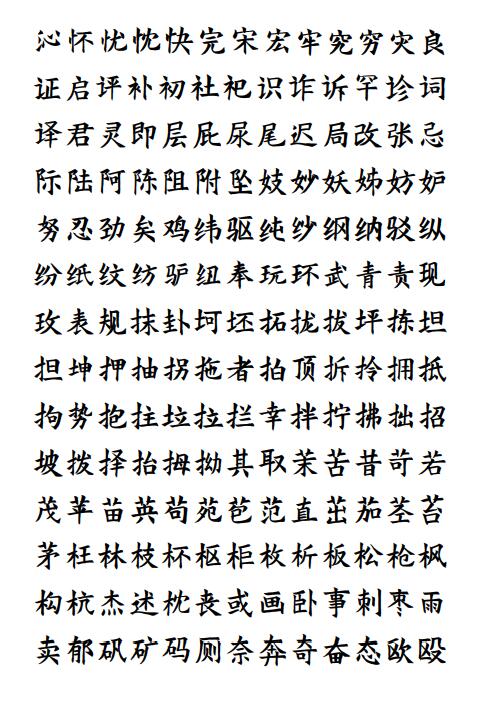 沁怀忧忱快完宋宏牢究穷灾良
证启评补初社祀识诈诉罕诊词
译君灵即层屁尿尾迟局改张忌
际陆阿陈阻附坠妓妙妖姊妨妒
努忍劲矣鸡纬驱纯纱纲纳驳纵
纷纸纹纺驴纽奉玩环武青责现
玫表规抹卦坷坯拓拢拔坪拣坦
担坤押抽拐拖者拍顶拆拎拥抵
拘势抱拄垃拉拦幸拌拧拂拙招
坡拨择抬拇拗其取茉苦昔苛若
茂苹苗英苟苑苞范直茁茄茎苔
茅枉林枝杯枢柜枚析板松枪枫
构杭杰述枕丧或画卧事刺枣雨
卖郁矾矿码厕奈奔奇奋态欧殴